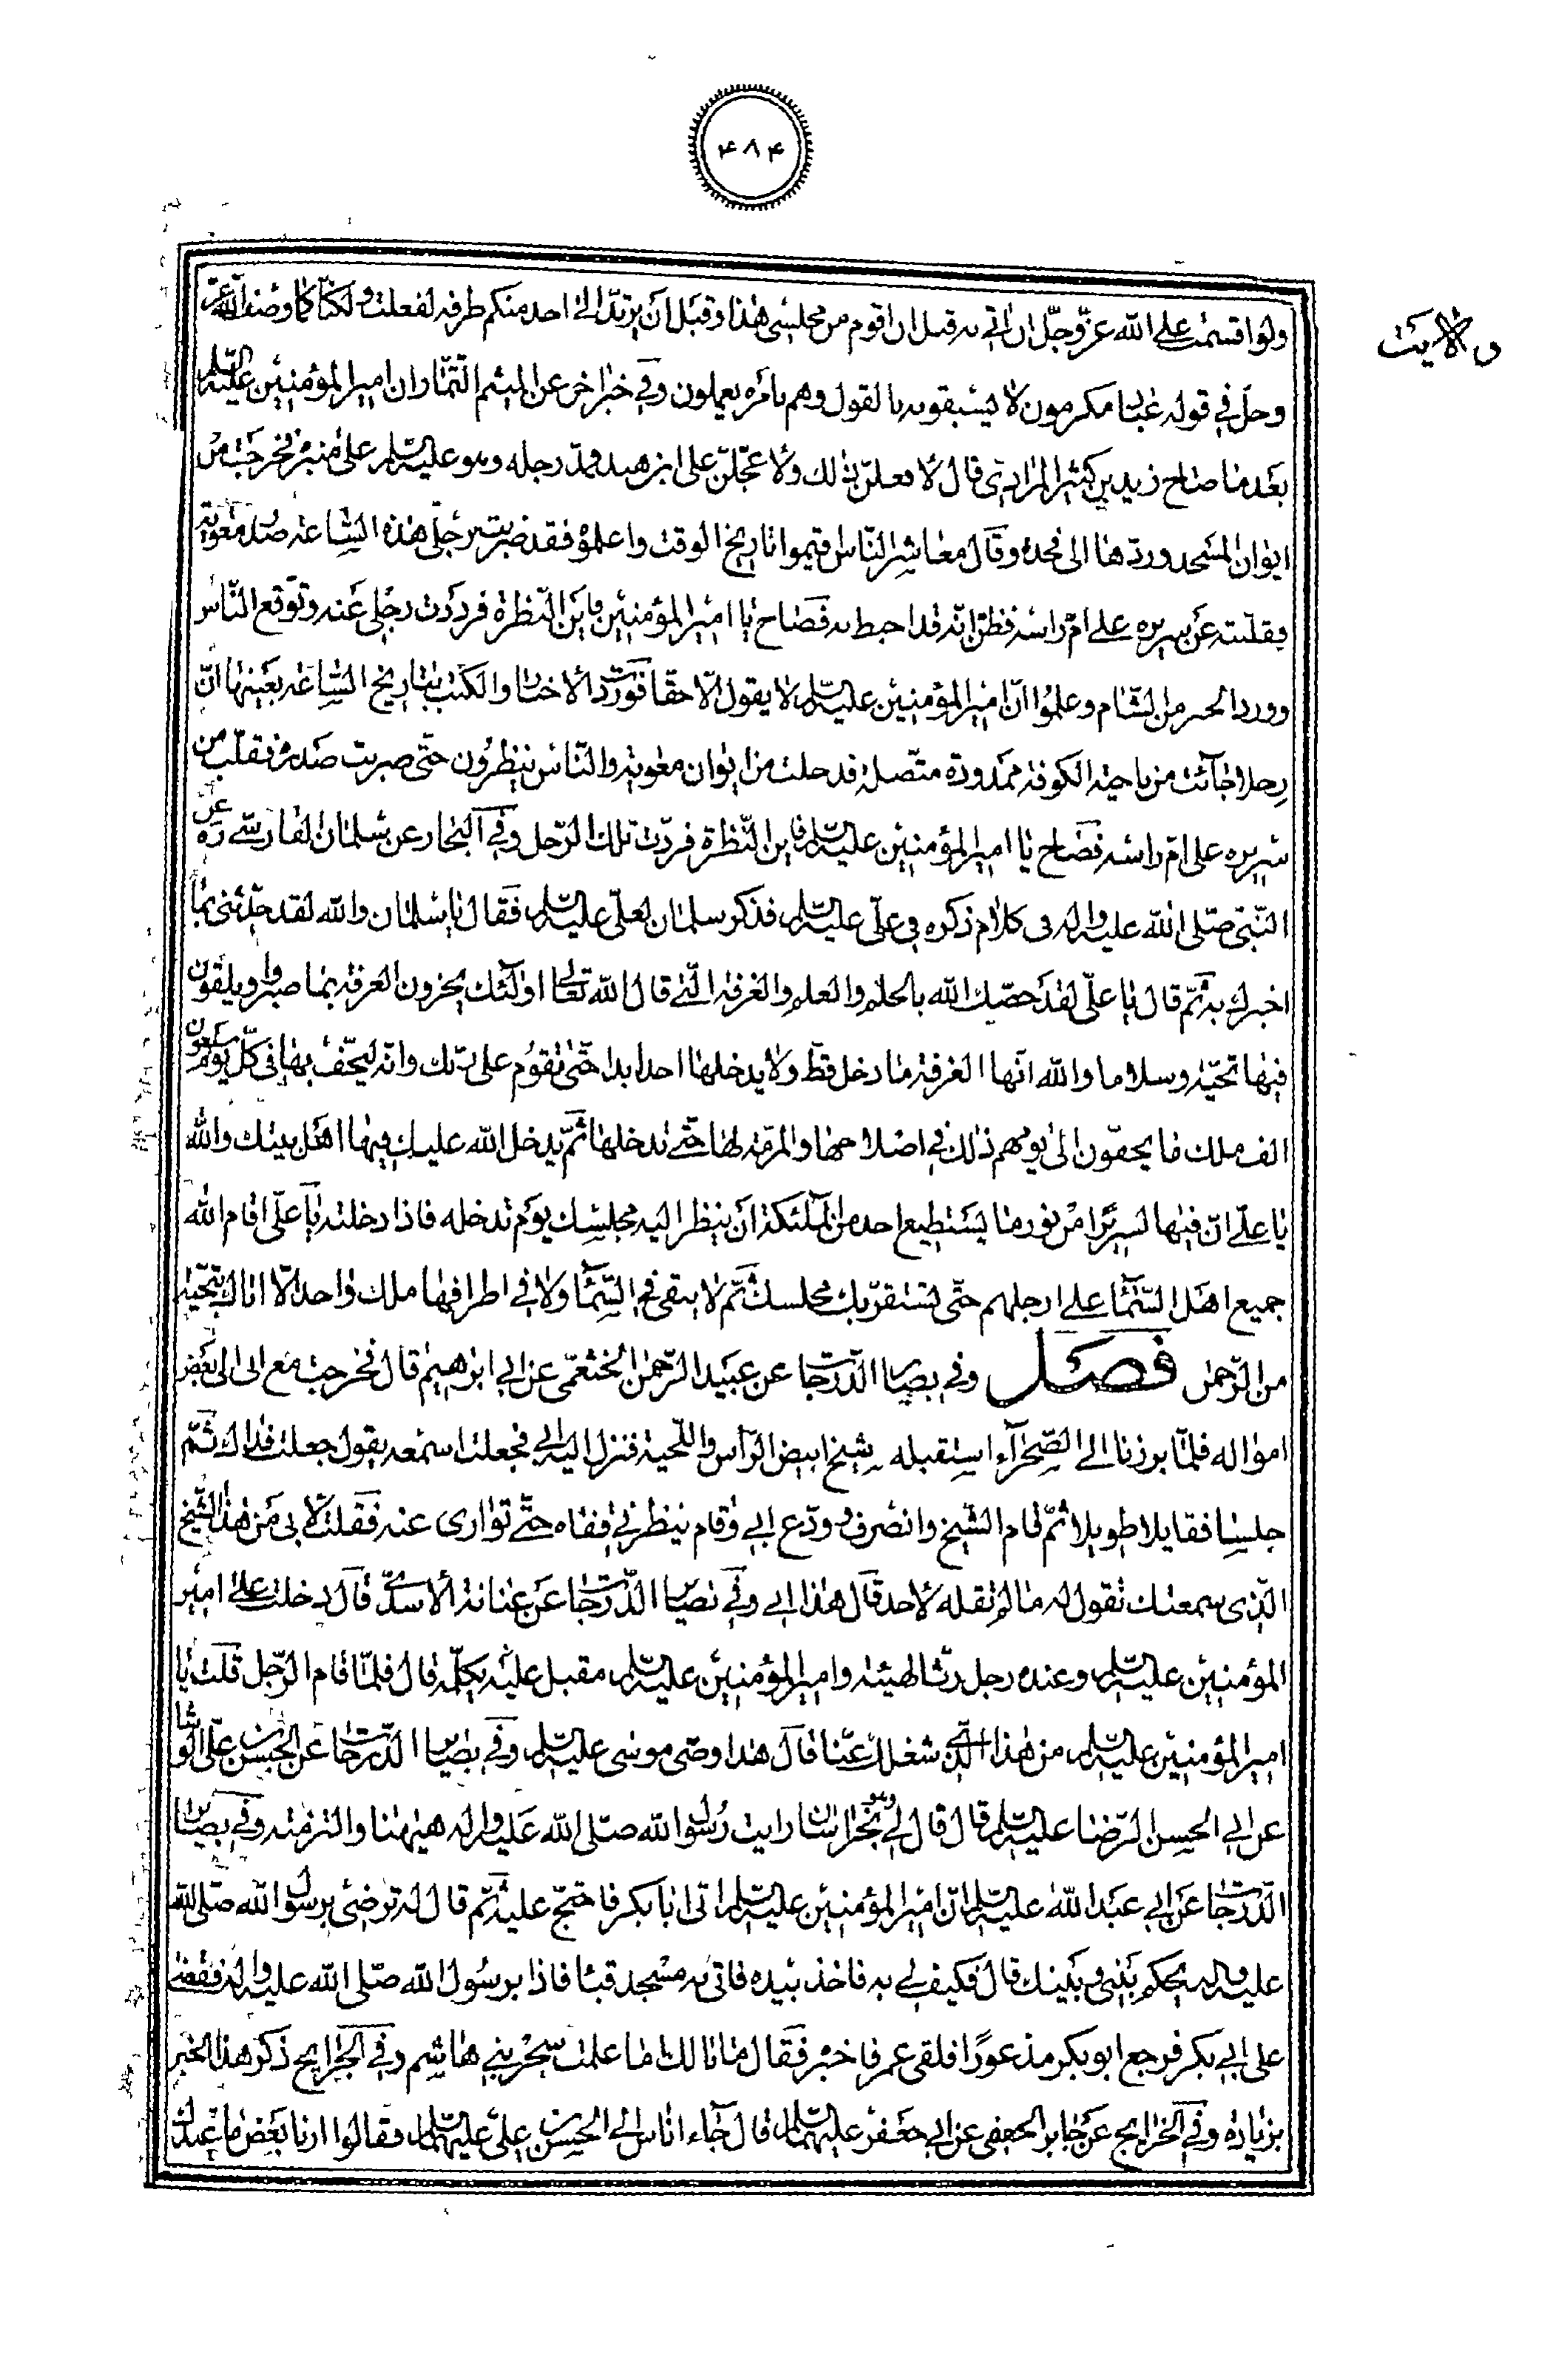 ۴۸۴
ولایت
ولو اقسمت علی الله عز و جل ان اتی به قبل ان اقوم من مجلسی هذا و قبل ان یرتد الی احد منکم طرفه لفعلت و لکنا کما وصف الله عز
وجل فی قوله عباد مکرمون لا یسبقونه بالقول وهم بامره یعملون وفی خبر اخر عن المیثم التمار ان امیر المؤمنین علیه السلم
بعد ما صاح زید بن کثیر المرادی قال لافعلن ذلک ولاعجلن علی ابن هند ومد رجله وهو علیه السلم علی منبره فخرجت من
ایوان المسجد وردها الی فخذه وقال معاشر الناس قیموا تاریخ الوقت واعلموه فقد ضربت برجلی هذه الساعة صدر معویة
فقلبته عن سریره علی ام راسه فظن انه قد احیط به فصاح یا امیر المؤمنین فاین النظرة فرددت رجلی عنه وتوقع الناس
وورد الخبر من الشام وعلموا ان امیر المؤمنین علیه السلم لا یقول الا حقا فوردت الاخبار والکتب بتاریخ الساعة بعینها ان
رجلا جائت من ناحیة الکوفة ممدودة متصلة قد دخلت من ایوان معویة والناس ینظرون حتی ضربت صدره فقلب من
سریره علی ام راسه فصاح یا امیر المؤمنین علیه السلم فاین النظرة فردت تلک الرجل وفی البحار عن سلمان الفارسی ره عن
النبی صلی الله علیه واله فی کلام ذکره فی علی علیه السلم فذکر سلمان لعلی علیه السلم فقال یا سلمان والله لقد حدثنی بما
اخبرک به ثم قال یا علی لقد خصک الله بالحلم والعلم والغرفة التی قال الله تعالی اولئک یجزون الغرفة بما صبروا ویلقون
فیها تحیة وسلاما والله انها الغرفة ما دخل قط ولا یدخلها احد ابدا حتی تقوم علی ربک وانه لیحف بها فی کل یوم سبعون
الف ملک ما یحفون الی یومهم ذلک فی اصلاحها والمرمة لها حتی تدخلها ثم یدخل الله علیک فیها اهل بیتک والله
یا علی ان فیها لسریرا من نور ما یستطیع احد من الملئکة ان ینظر الیه مجلسک یوم تدخله فاذا دخلته یا علی اقام الله
جمیع اهل السماء علی ارجلهم حتی یستقر بک مجلسک ثم لا یبقی فی السماء ولا فی اطرافها ملک واحد الا اتاک بتحیة
من الرحمن فصل وفی بصایر الدرجات عن عبید الرحمن الخثعمی عن ابی ابرهیم قال خرجت مع ابی الی بعض
امواله فلما برزنا الی الصحراء استقبله شیخ ابیض الراس واللحیة فنزل الیه ابی فجعلت اسمعه یقول جعلت فداک ثم
جلسا فتقایلا طویلا ثم قام الشیخ وانصرف وودع ابی وقام ینظر فی قفاه حتی تواری عنه فقلت لابی من هذا الشیخ
الذی سمعتک تقول له ما لم تقله لاحد قال هذا ابی وفی بصایر الدرجات عن عبایة الاسدی قال دخلت علی امیر
المؤمنین علیه السلم وعنده رجل رث الهیئة وامیر المؤمنین علیه السلم مقبل علیه یکلمه قال فلما قام الرجل قلت یا
امیر المؤمنین علیه السلم من هذا الذی شغلک عنا قال هذا وصی موسی علیه السلم وفی بصایر الدرجات عن الحسن بن علی الوشا
عن ابی الحسن الرضا علیه السلم قال قال لی وهو بخراسان رایت رسول الله صلی الله علیه واله هیهنا والتزمته وفی بصایر
الدرجات عن ابی عبد الله علیه السلم ان امیر المؤمنین علیه السلم اتی ابابکر فاحتج علیه ثم قال له ترضی برسول الله صلی الله
علیه واله یحکم بینی وبینک قال فکیف لی به فاخذ بیده فاتی به مسجد قبا فاذا برسول الله صلی الله علیه واله فقضی
علی ابی بکر فرجع ابو بکر مذعورا فلقی عمر فاخبره فقال مالک اما علمت سحر بنی هاشم وفی الخرایج ذکر هذا الخبر
بزیادة وفی الخرایج عن جابر الجعفی عن ابی جعفر علیهما السلام قال جاء اناس الی الحسن بن علی علیهما السلام فقالوا ارنا بعض ما عندک